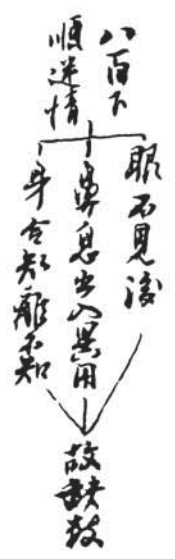 八百下
順逆情
眼不見後
鼻息出入異用
身合知離不知
故缺